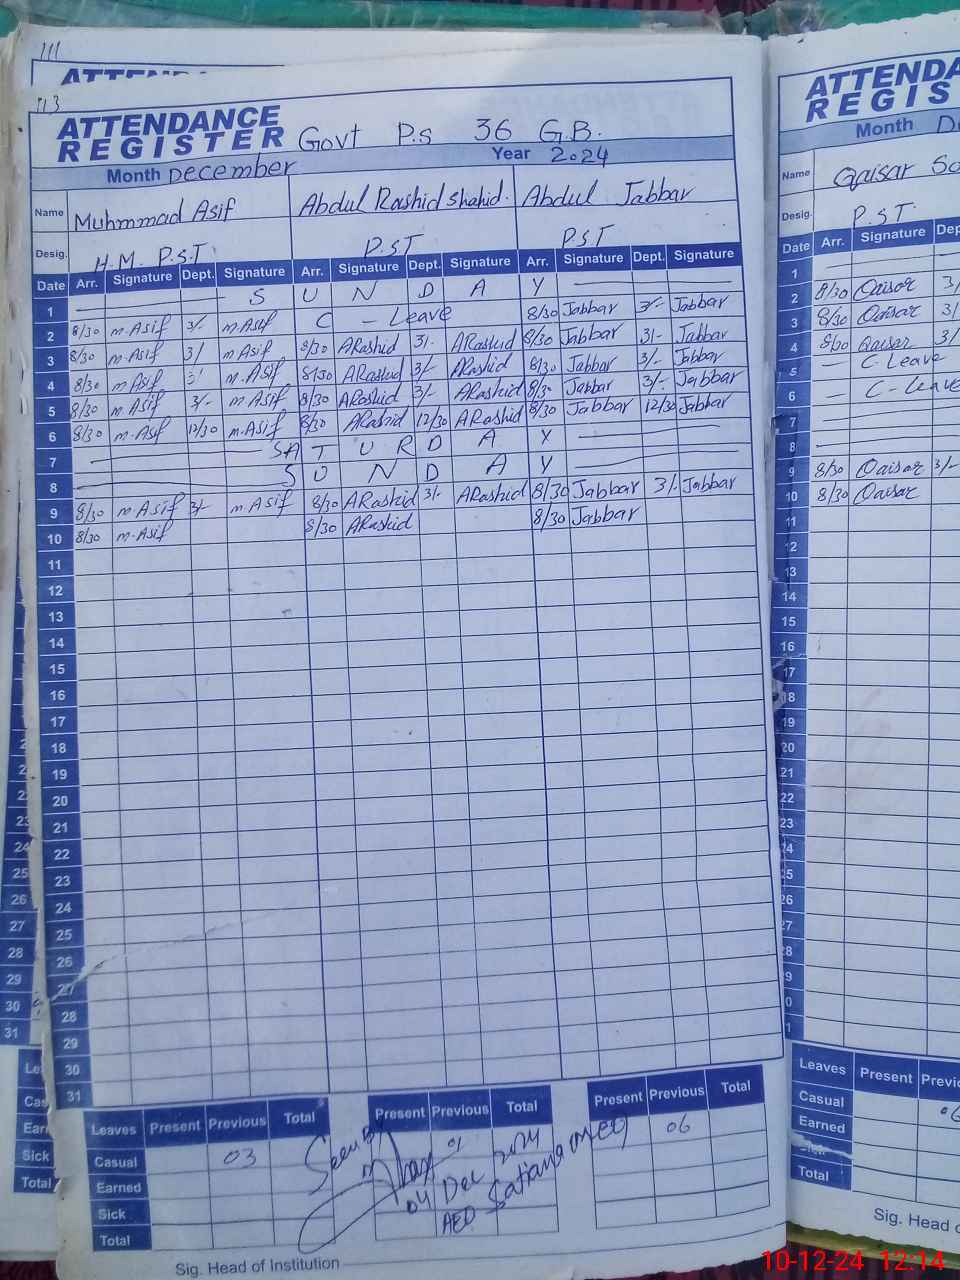 111
ATTENDANCE
113
ATTENDANCE
REGISTER Govt P.S 36 G.B.
Month December Year 2024
Name Muhmmad Asif Abdul Rashid Shahid. Abdul Jabbar
Desig. H.M. P.S.T P.S.T P.S.T
Date Arr. Signature Dept. Signature Arr. Signature Dept. Signature Arr. Signature Dept. Signature
1 S U N D A Y
2 8/30 m.Asif 3/- m.Asif C - Leave 8/30 Jabbar 3/- Jabbar
3 8/30 m.Asif 3/ m.Asif 8/30 ARashid 3/- ARashid 8/30 Jabbar 3/- Jabbar
4 8/30 m.Asif m.Asif 8/30 ARashid 3/- ARashid 8/30 Jabbar 3/- Jabbar
5 8/30 m.Asif 3/- m.Asif 8/30 ARashid 3/- ARashid 8/3 Jabbar 3/- Jabbar
6 8/30 m.Asif 12/30 m.Asif 8/30 ARashid 12/30 ARashid 8/30 Jabbar 12/30 Jabbar
7 SA T U R D A Y
8 S U N D A Y
9 8/30 m.Asif 3/- m.Asif 8/30 ARashid 3/- ARashid 8/30 Jabbar 3/- Jabbar
10 8/30 m.Asif 8/30 ARashid 8/30 Jabbar
11
12
13
14
15
16
17
18
19
20
21
22
23
24
25
26
27
28
29
30
31
Leaves Present Previous Total Present Previous Total Present Previous Total
Casual 03 06
Earned
Sick
Total
Seen By
04 Dec 2024
AEO Satiana
Sig. Head of Institution
ATTENDA
REGIS
Month De
Name Qaisar
Desig. P.S.T
Date Arr. Signature Dep
1
2 8/30 Qaisar 3/
3 8/30 Qaisar 3/
4 8/30 Qaisar 3/
5 C. Leave
6 C - Leave
7
8
9 8/30 Qaisar 3/-
10 8/30 Qaisar
11
12
13
14
15
16
17
18
19
20
21
22
23
24
25
26
27
28
9
0
1
Leaves Present Previo
Casual
Earned
Sick
Total
Sig. Head o
10-12-24 12:14